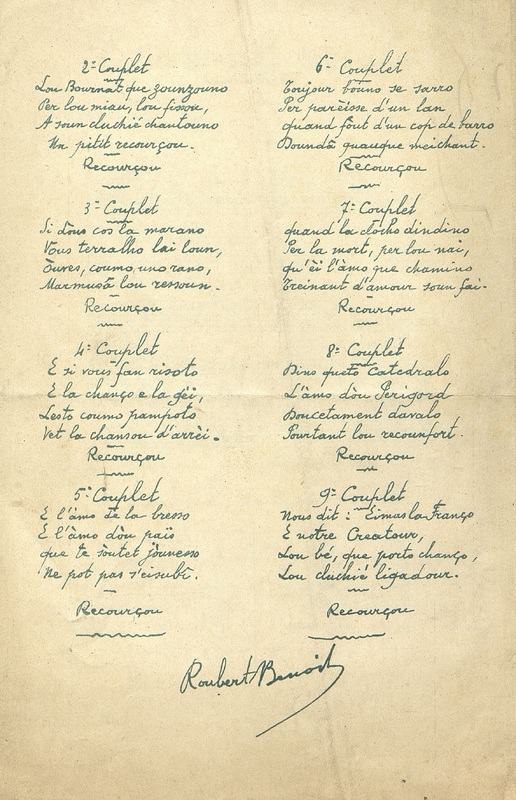 2e Couplet
Lou Bournat que zounzouno
Per lou miau, lou fissou,
A soun cluchié chantouno
Un pitit recourçou.
Recourçou
3e Couplet
Si dòus cos la marano
Vous terralho lai loun,
Òuves, coumo uno rano,
Marmusà lou ressoun.
Recourçou
4e Couplet
E si vous fan risoto
E la chanço e la gèi,
Lesto coumo pampoto
Vet la chansou d'arrèi.
Recourçou
5e Couplet
E l'àmo de la bresso
E l'àmo dòu païs
que te soutet jòunesso
Ne pot pas s'eisubï.
Recourçou
6e Couplet
Toujour bouno se sarro
Per parèisse d'un lan
quand fòut d'un cop de barro
Doundà quauque meichant.
Recourçou
7e Couplet
quand la clocho dindino
Per la mort, per lou nai,
qu'èi l'àmo que chamino
Treinant d'amour soun fai.
Recourçou
8e Couplet
Dins queto Catedralo
L'àmo dòu Perigord
Doucetament davalo
Pourtant lou recounfort.
Recourçou
9e Couplet
Nous dit : Eimas la Franço
E notre Creatour,
Lou bé, que porto chanço,
Lou cluchié ligadour.
Recourçou
Roubert Benoit